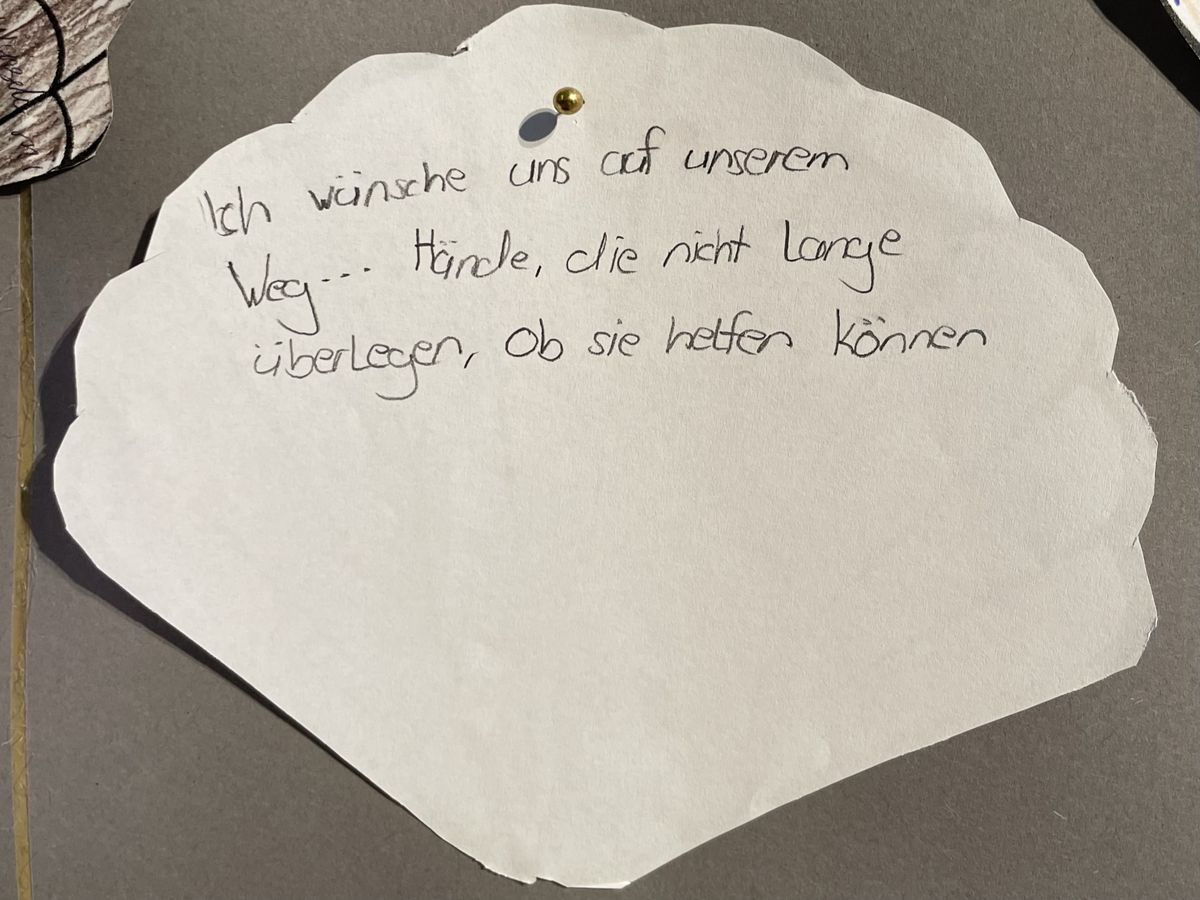 Ich wünsche uns auf unserem
Weg... Hände, die nicht lange
überlegen, ob sie helfen können